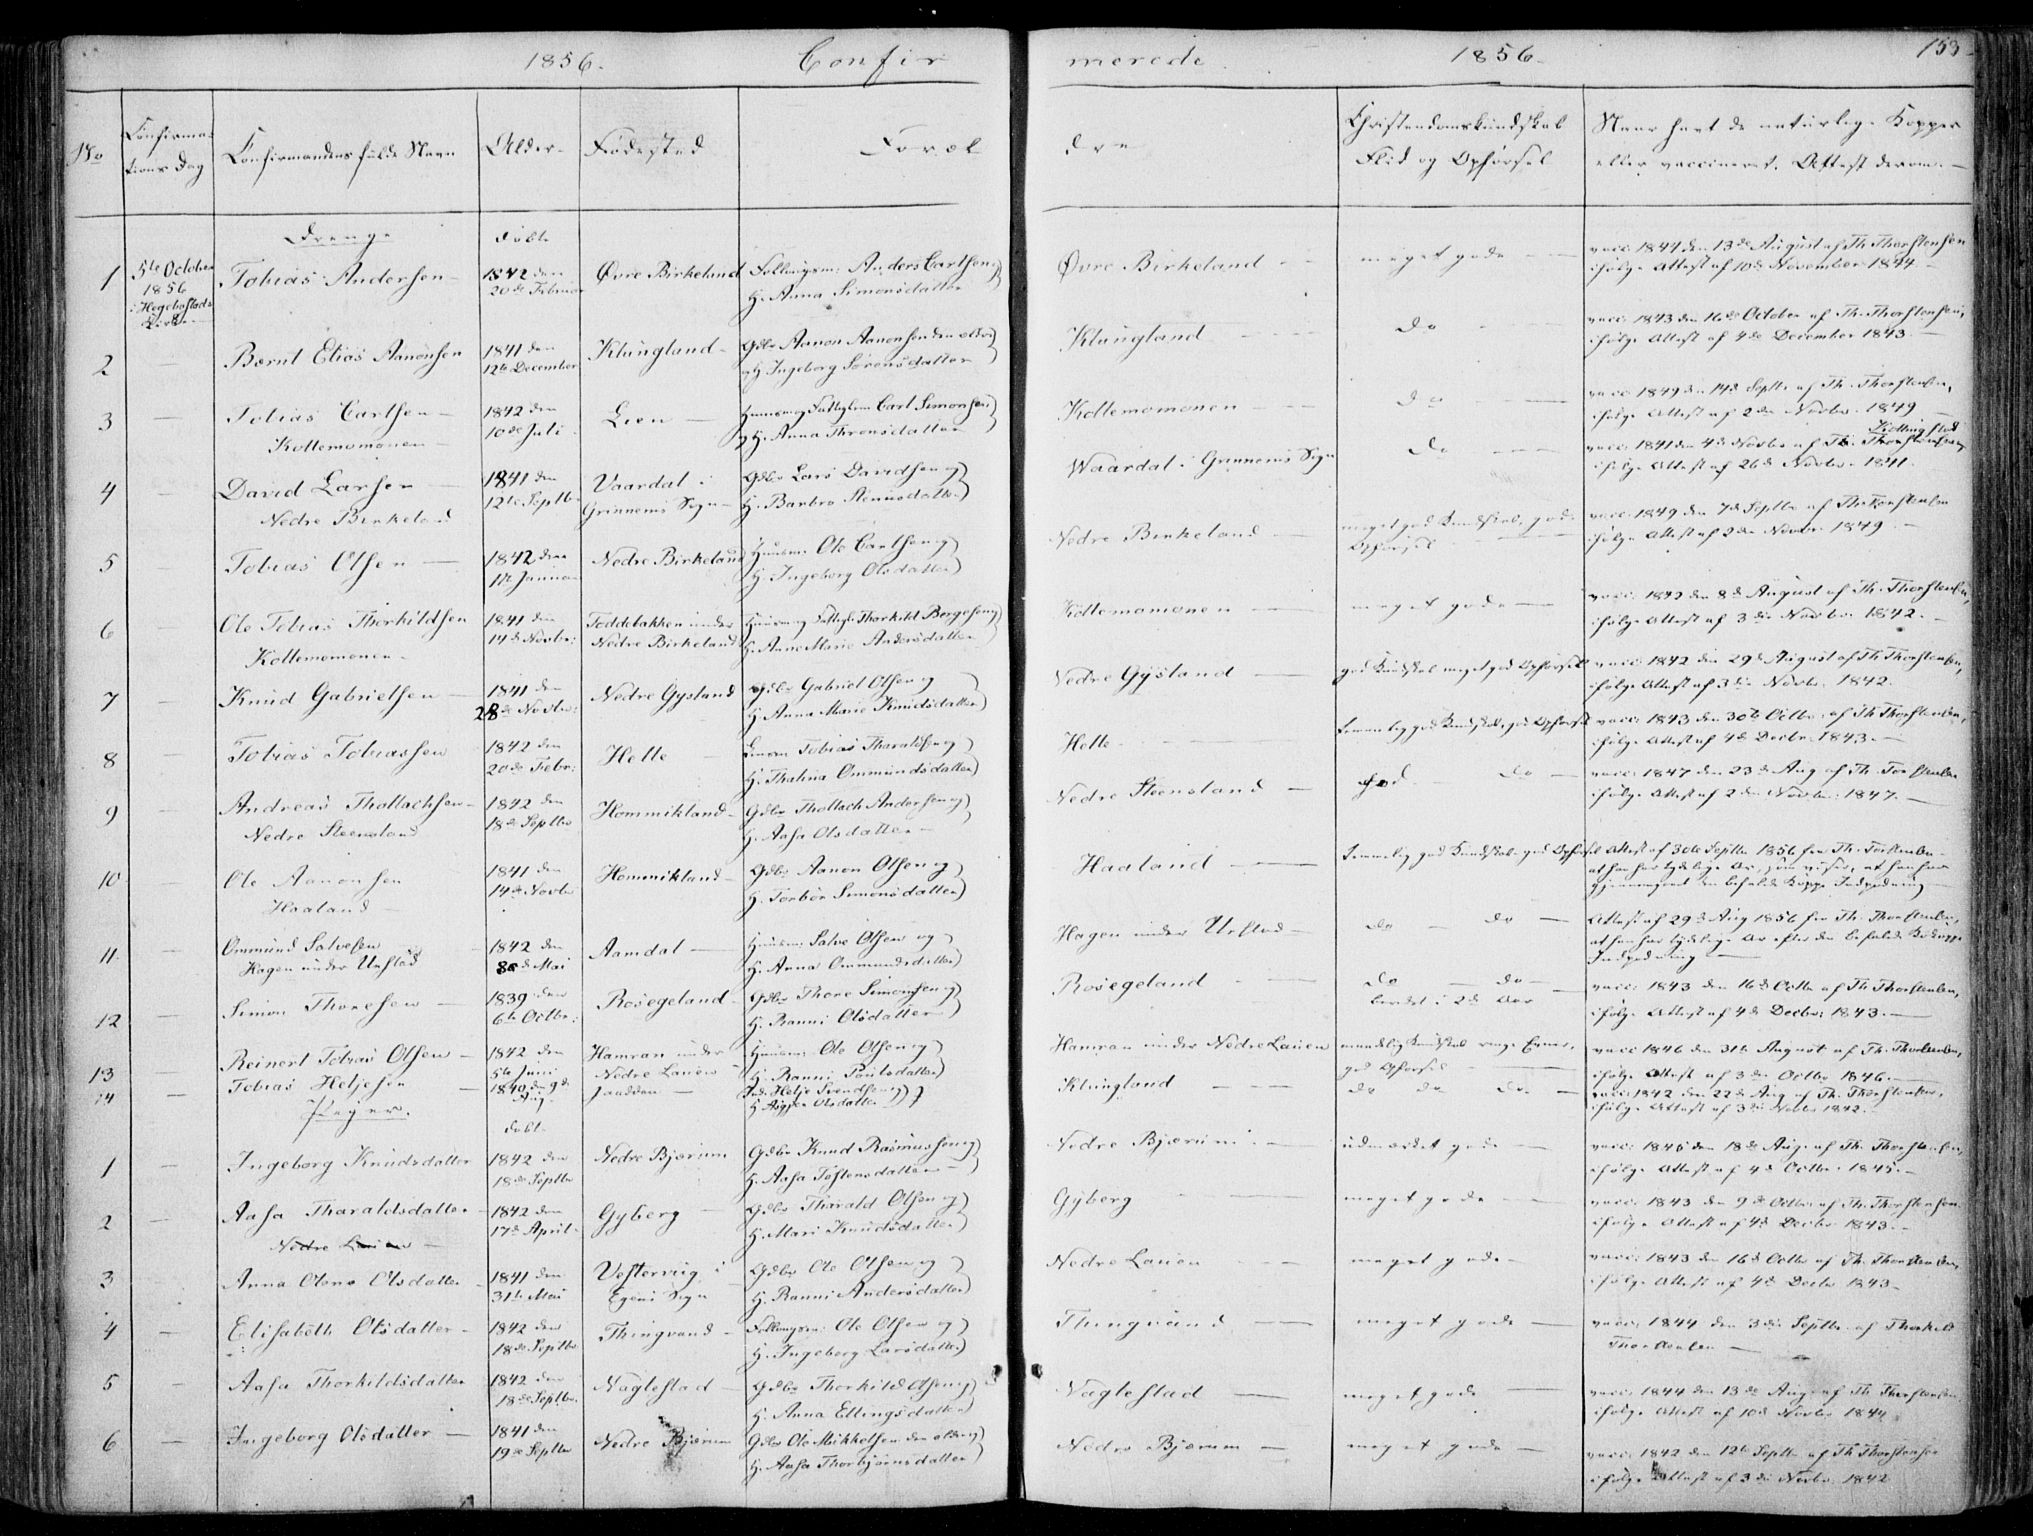 1856. Confir merede 1856. 153
No Confirmations Dag Confirmandens fulde Navn Alder Fødested Foræl dre Christendomskundskab Flid og Opførsel Naar havt de naturlige Kopper eller vaccineret. Attest derom.
Drenge døbt
1 5te October 1856 i Hegebostads Kirke Tobias Andersen 1842 den 20de Februar Øvre Birkeland Anders Carlsen og H. Anna Simonsdatter Øvre Birkeland meget gode vacc. 1844 den 13de August af Th. Thorstensen ifølge Attest af 10de November 1844
2 Bernt Elias Aanonsen 1841 den 12te December Klungland Gdbr Aanon Aanonsen den eldre og H. Ingeborg Sørensdatter Klungland do vacc. 1843 den 16de October af Th. Thorstensen, ifølge Attest af 4de December 1843
3 Tobias Carlsen Kollemomonen 1842 den 10de Juli Lien Carl Simonsen og H. Anna Thronsdatter Kollemomonen do vacc. 1849 den 14de Septbr af Th. Thorstensen, ifølge Attest af 2den Novbr. 1849
4 David Larsen Nedre Birkeland 1841 den 12te Septbr Vaardal i Grinnems Sogn Gdbr Lars Davidsen og H. Barbro Waardal i Grinnems Sogn do vacc. 1841 den 4de Novbr af ifølge Attest af 26de Novbr. 1841.
5 Tobias Olsen 1842 den Januar Nedre Birkeland Huusm: Ole Carlsen og H. Ingeborg Olsdatter Nedre Birkeland meget god Kundskab, gode Opførsel vacc. 1849 den 7de Septbr af Th. Torstensen ifølge Attest af 2den Novbr. 1849
6 Ole Tobias Thorkildsen Kollemomonen 1841 den 14de Novbr: under Nedre Birkeland Thorkild Borgesen og H. Anne Marie Andersdatter Kollemomonen meget gode vacc. 1842 den 8de August af Th. Thorstensen, ifølge Attest af 3die Novbr. 1842.
7 Knud Gabrielsen 1841 den 28de Novbr: Nedre Gysland Gdbr Gabriel Olsen og H. Anna Marie Knudsdatter Nedre Gysland god Kundskab meget god Opførsel vacc. 1842 den 29de August af Th. Thorstensen, ifølge Attest af 3die Novbr. 1842.
8 Tobias Tobiassen 1842 den 20de Febr: Helle Tobias Tharaldsen og H. Thalina Ommundsdatter Helle temmelig god Kundskab, god Opførsel vacc. 1843 den 30te Octbr. af Th. Thorstensen, ifølge Attest af 4de Decbr. 1843.
9 Andreas Thollachsen Nedre Steensland 1842 18de Septbr Hommikland Gdbr Thollach Andersen og H. Aasa Olsdatter Nedre Steensland god do vacc. 1847 den 23de Aug af Th. Torstensen ifølge Attest af 2den Novbr. 1847.
10 Ole Aanonsen Haaland 1841 den 14de Novbr Hommikland Gdbr Aanon Olsen og H. Torbør Simonsdatter Haaland temmelig god Kundskab god Opførsel Attest af 30te Septbr 1856 fra Th. Torstensen
11 Ommund Salvesen Hagen under Urstad 1842 den Mai Aamdal Huusm: Salve Olsen og H. Anna Ommundsdatter Hagen under Urstad do do Attest af 29de Aug 1856 fra Th. Thorstensen, at han har tydelige Ar efter Indpodning
12 Simon Thoresen 1839 den 6te Octbr: Rosegeland Gdbr Thore Simonsen og H. Ranni Olsdatter Rosegeland do do vacc. 1843 den 16de Octbr af Th. Thorstensen, ifølge Attest af 4de Decbr: 1843.
13 Reinert Tobias Olsen 1842 den 5te Juni Hamran under Nedre Lauen Huusm: Ole Olsen og H. Ranni Hamran under Nedre Lauen god Opførsel vacc 1846 den 31te August af Th. Thorstensen, ifølge Attest af 3die Octbr 1846.
14 Tobias Heljesen 1840 den 9de Aug. Helje Svendsen og H. Olsdatter Klungland do do do vacc. 1842 den 22de Aug af Th. Thorstensen, ifølge Attest af 3die Novbr 1842.
Piger. døbt
1 Ingeborg Knudsdatter 1842 den 18de Septbr Nedre Bjærum Gdbr Knud Rasmussen og H. Aasa Tostensdatter Nedre Bjærum udmærket gode vacc. 1845 den 18de Aug. af Th. Thorstensen, ifølge Attest af 4de Octbr. 1845.
2 Aasa Tharaldsdatter 1842 den 17de April Gyberg Gdbr Tharald Olsen og H. Mari Knudsdatter Gyberg meget gode vacc. 1843 den 9de Octbr. af Th. Thorstensen ifølge Attest af 4de Decbr 1843.
Nedre Lauen
3 Anna Olene Olsdatter 1841 den 31te Mai Vesterviig i Sogn Gdbr Ole Olsen og H. Ranni Andersdatter Nedre Lauen meget gode vacc. 1843 den 16de Octbr af Th. Thorstensen, ifølge Attest af 4de Decbr 1843
4 Elisabeth Olsdatter 1842 den 18de Septbr Thingvand Ole Olsen og H. Ingeborg Larsdatter Thingvand meget gode vacc. 1844 den 3die Septbr. af Thorkild Thorstensen
5 Aasa Thorkildsdatter 1842 den 18de Septbr. Naglestad Gdbr Thorkild Olsen og H. Anna Ellingsdatter Naglestad meget gode vacc. 1844 den 13de Aug. af Th. Thorstensen ifølge Attest af 10de Novbr 1844
6 Ingeborg Olsdatter 1841 den 19de Septbr Nedre Bjærum Gdbr Ole Mikkelsen den eldre og H. Aasa Thorbjørnsdatter Nedre Bjærum meget gode vacc. 1842 den 12te Septbr af Th. Thorstensen ifølge Attest af 3die Novbr. 1842